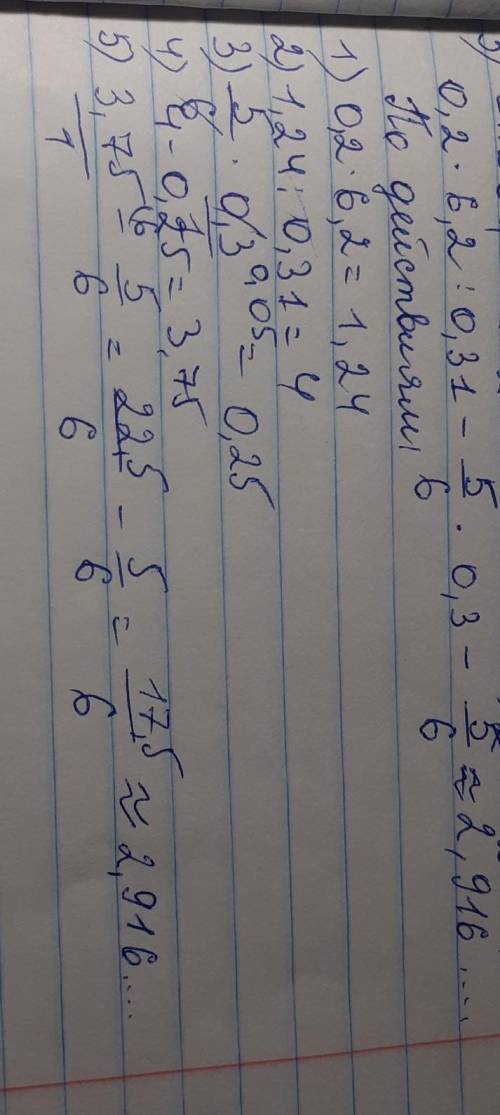 0,2 · 6,2 : 0,31 - 5/6 · 0,3 - 5/6 ≈ 2,916...
По действиям:
1) 0,2 · 6,2 = 1,24
2) 1,24 : 0,31 = 4
3) 5/6 · 0,3 0,05 = 0,25
4) 4 - 0,25 = 3,75
5) 3,75/1 6 - 5/6 = 22,5/6 - 5/6 = 17,5/6 ≈ 2,916...